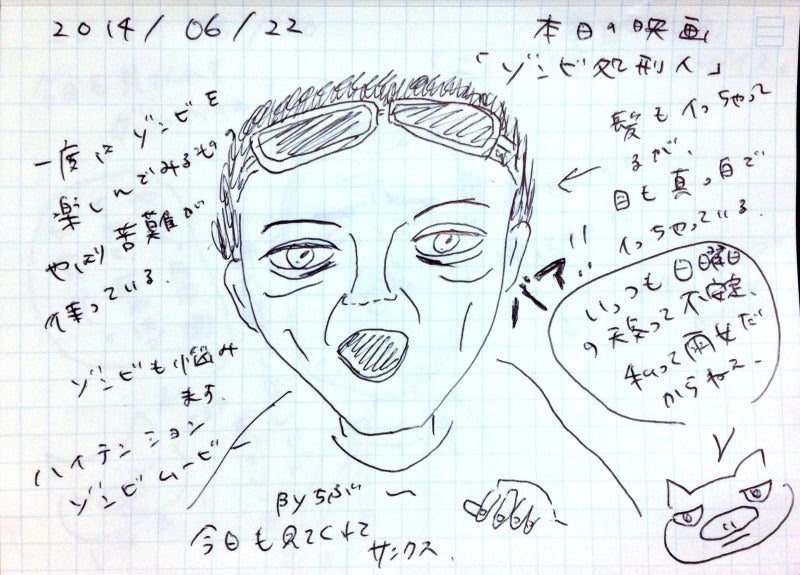 2014/06/22
本日の映画
「ゾンビ処刑人」
一度はゾンビを
楽しんでみるものの
やっぱり苦難が
待っている.
ゾンビも悩み
ます.
ハイテンション
ゾンビムービー
髪もイっちゃって
るが、
目も真っ白で
イっちゃっている.
いつも日曜日
の天気って不安定、
私って雨女だ
からねー
βyちぶ〜
今日も見てくれて
サンクス.